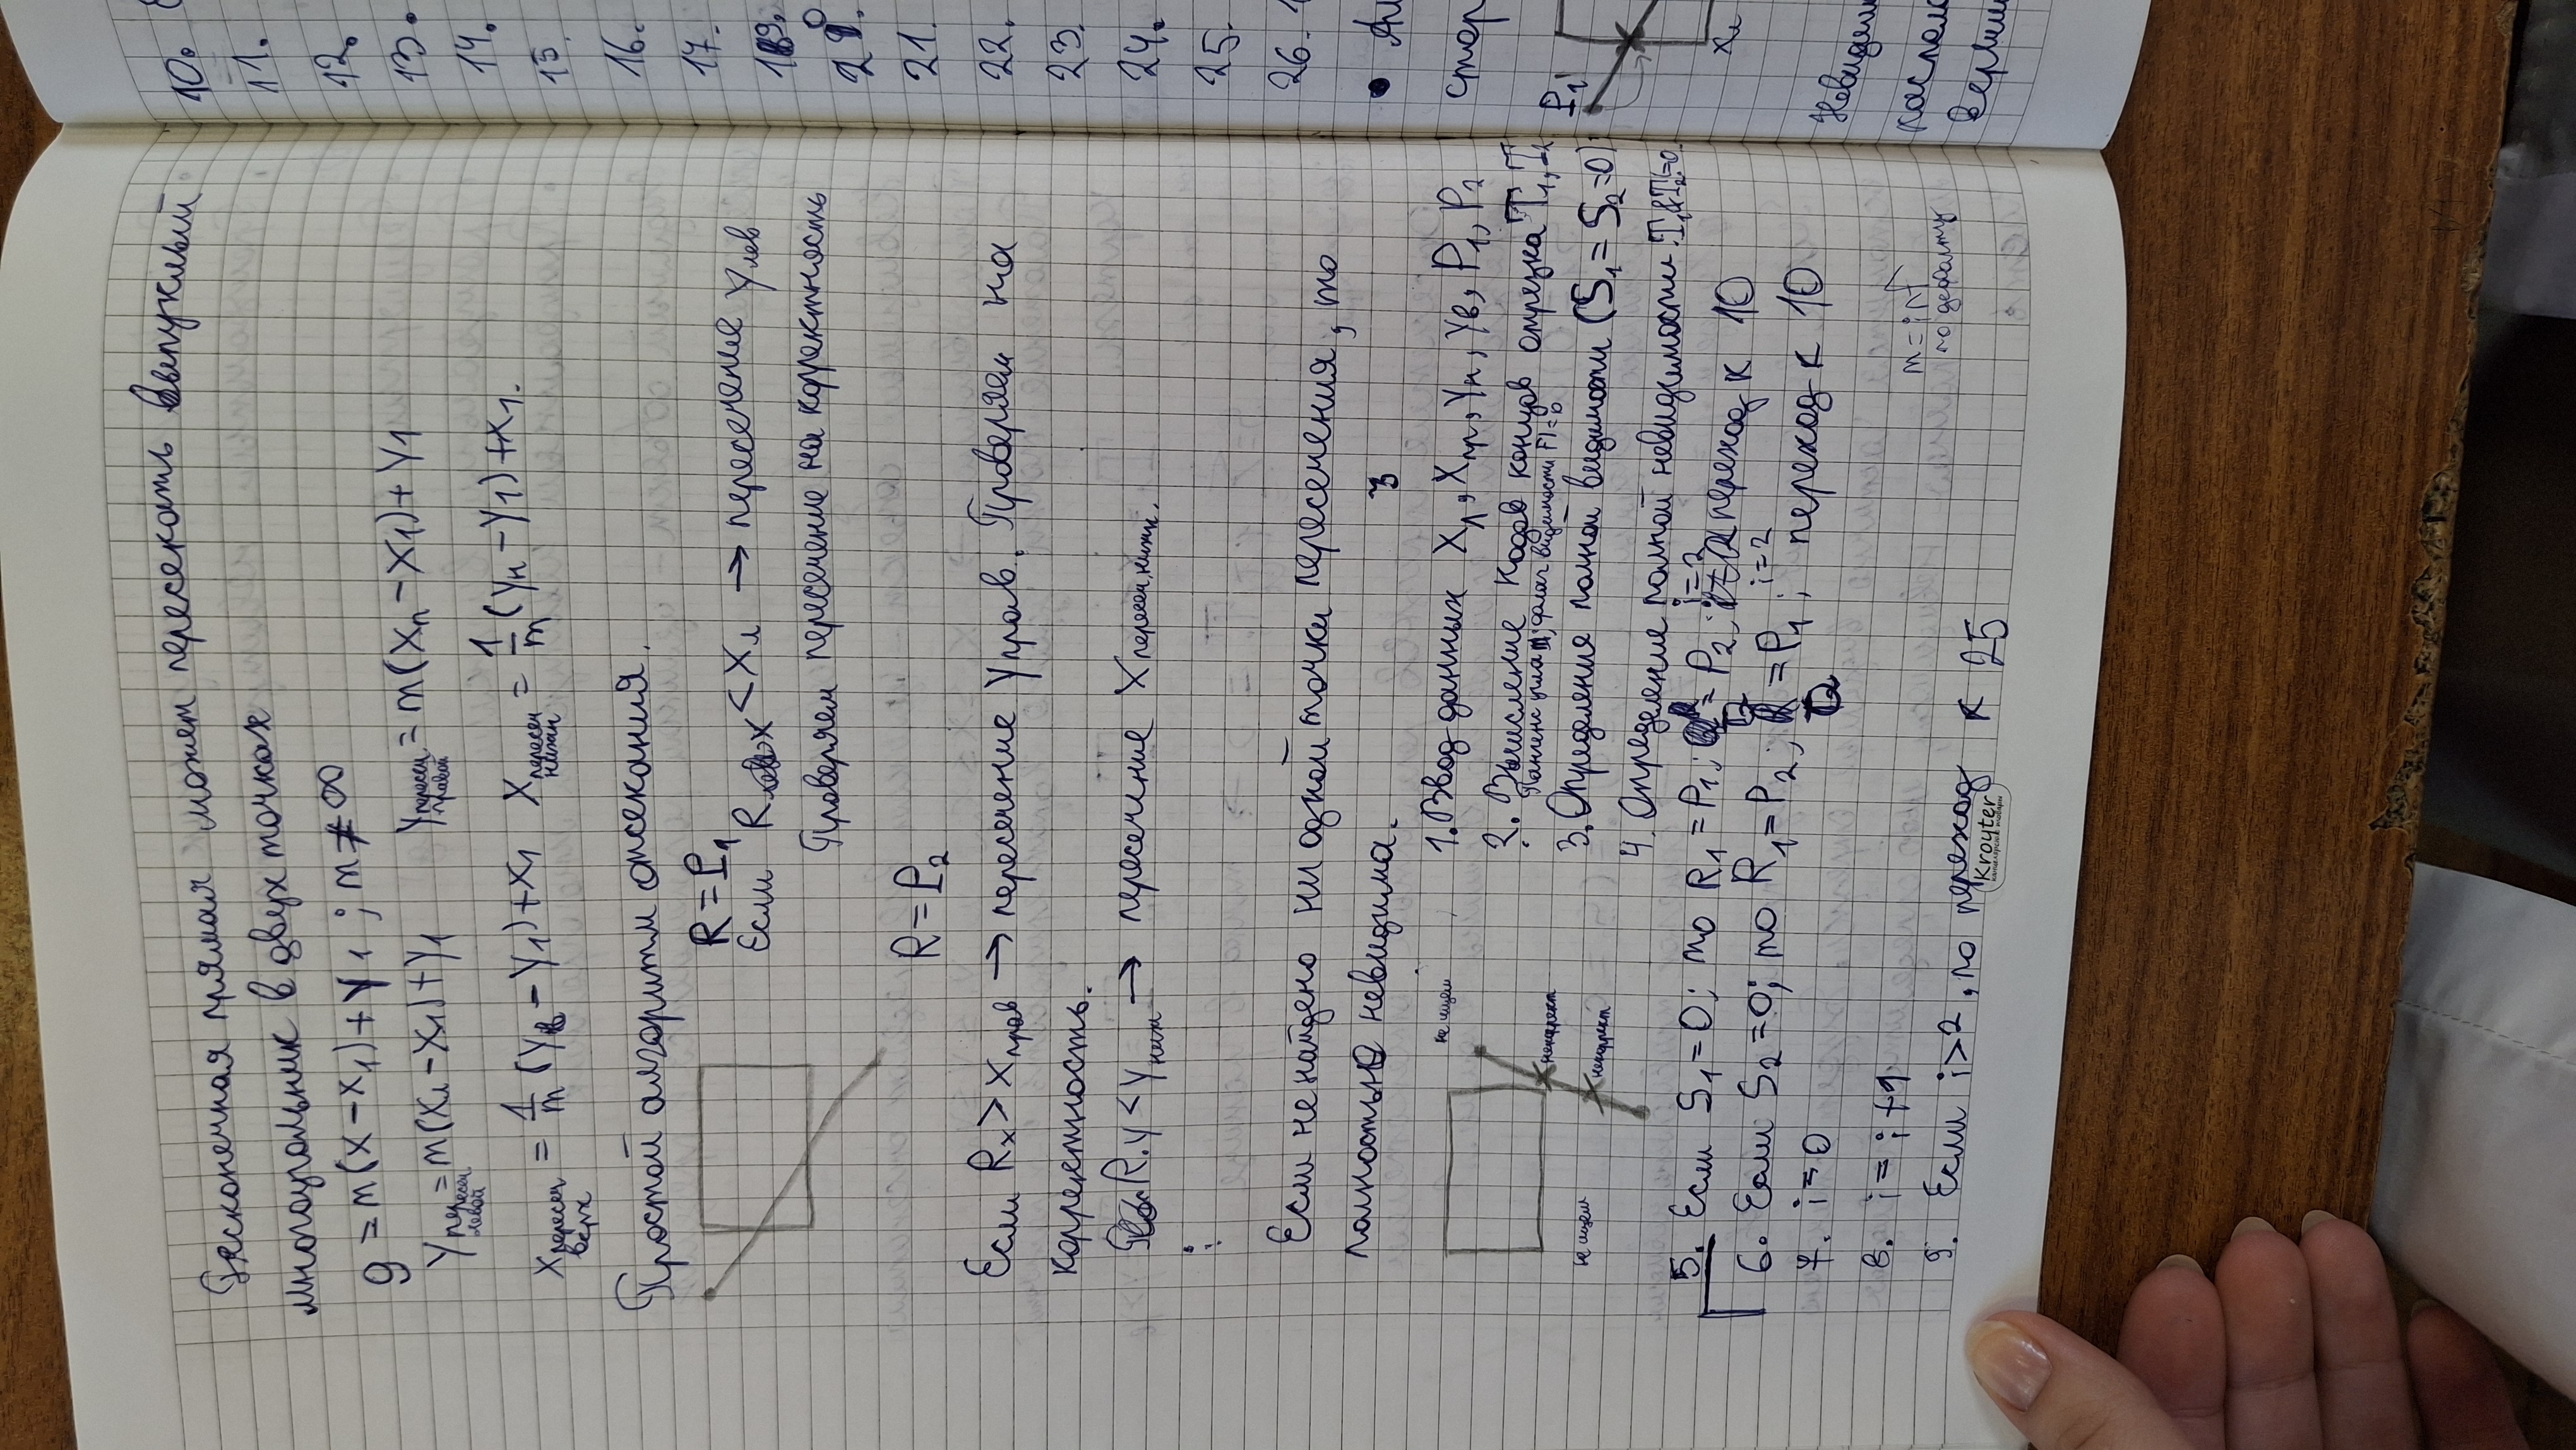 Бесконечная прямая может пересекать выпуклый
многоугольник в двух точках
y = m(x - x₁) + y₁ ; m ≠ ∞
y пересеч левой = m(xл - x₁) + y₁ y пересеч правой = m(xп - x₁) + y₁
x пересеч верх = 1/m (yв - y₁) + x₁ x пересеч нижн = 1/m (yн - y₁) + x₁.
Простой алгоритм отсекания.
R = P₁
Если R x < xл → пересечение y лев
Проверяем пересечение на корректность
R = P₂
Если Rx > x прав → пересечение y прав. Проверяем на
корректность.
R.y < y ниж → пересечение x пересеч.нижн.
⋮
Если не найдено ни одной точки пересечения, то
полностью невидима.
3
не ищем
некоррект
не ищем
некоррект
1. Ввод данных xл, xпр, yн, yв, P₁, P₂
2. Вычисление кодов концов отрезка T₁, T₂
Тангенс угла m; флаг видимости Fl = 0
3. Определения полной видимости (S₁ = S₂ = 0)
4. Определение полной невидимости T₁ & T₂ != 0
5. Если S₁ = 0; то R₁ = P₁; Q = P₂; i = 2 переход к 10
6. Если S₂ = 0; то R₁ = P₂; Q = P₁; i = 2 переход к 10
7. i = 0
8. i = i + 1
9. Если i > 2, то переход к 25
m = inf
по дефолту
Kroyter
канцелярские товары
10.
11.
12.
13.
14.
15.
16.
17.
19.
20.
21.
22.
23.
24.
25.
26. 1
• Ал
стор
P₁
xл
Невидим
распол
верши